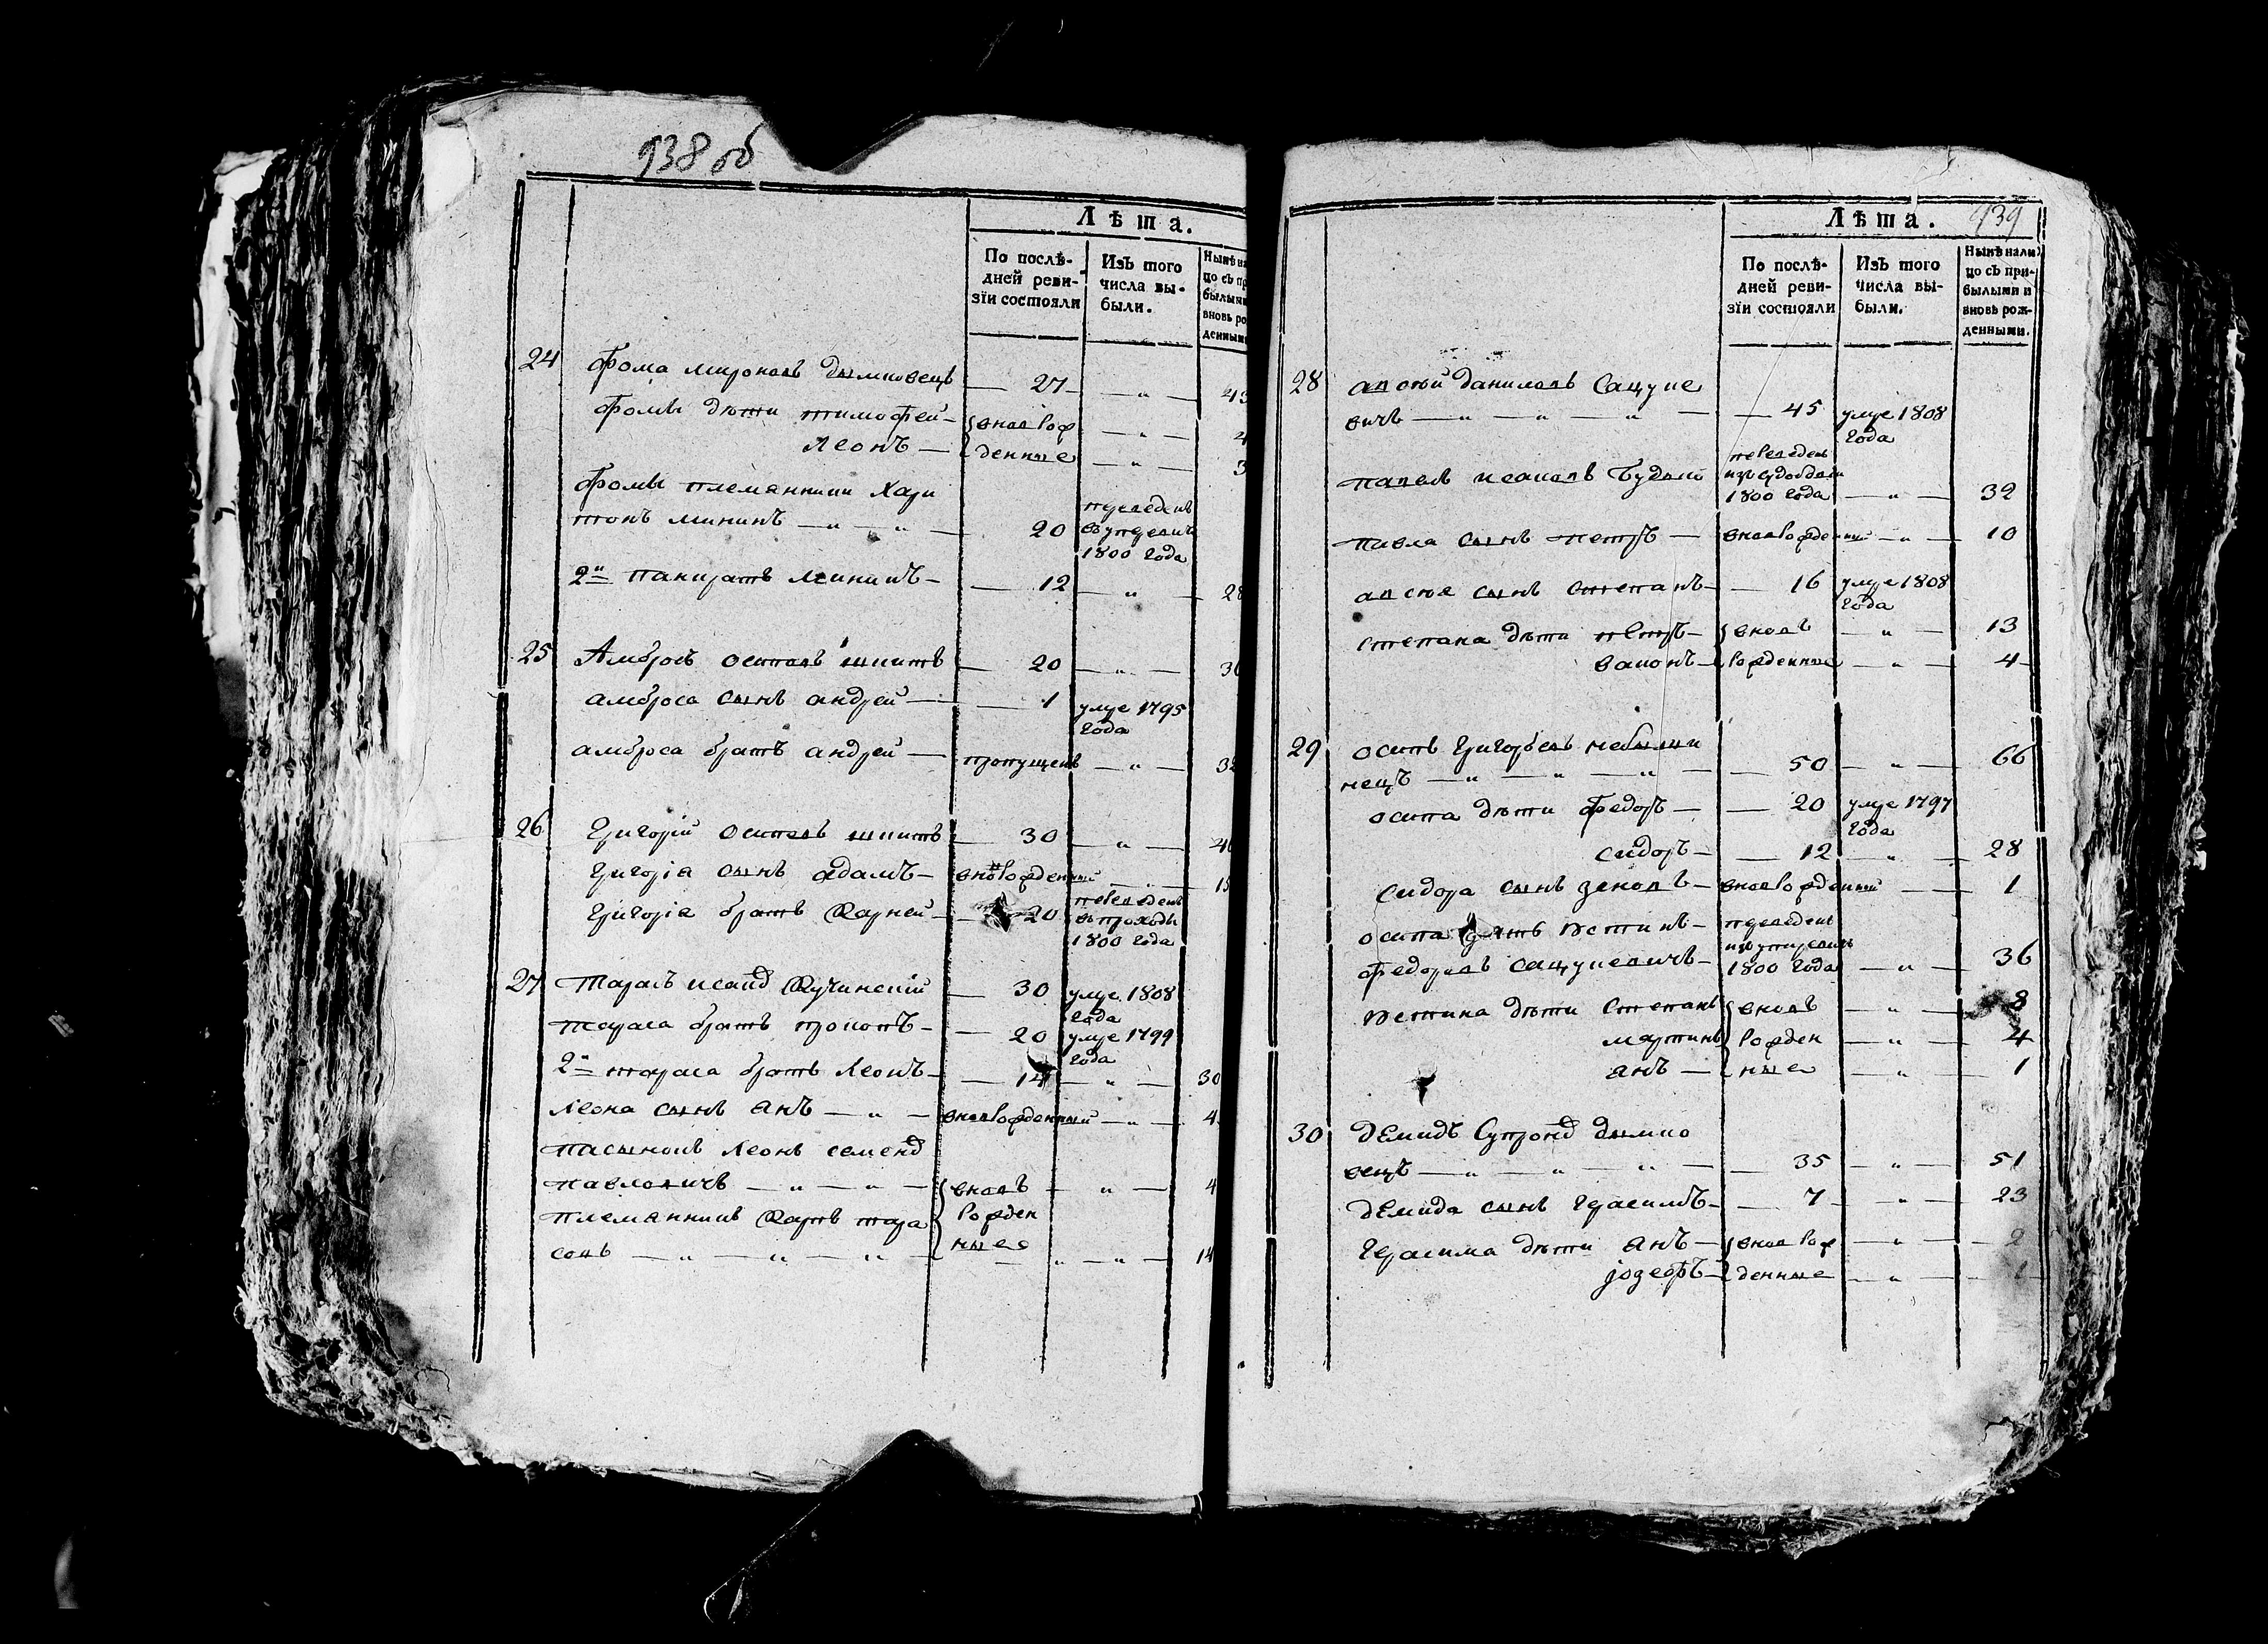 938 об
Лѣта.
По послѣ-
дней реви-
зіи состояли
Изъ того
числа вы-
были.
Нынѣ на
цо съ пр
былыми
вновь ро
денным
24 Фома мироновъ дымновецъ — 27 — „ — 43
Фомы дѣти тимофей — вновь рож — „ — 4
леонъ — денные — „ — 3
Фомы племянники Хари
тонъ мининъ — „ — „ — 20 переведенъ 1800 года
2й панкратъ мининъ — 12 — „ — 28
25 Амбросъ осиповъ шпитъ — 20 — „ — 36
амброса сынъ андрей — 1 умре 1795
года
амброса братъ андрей — пропущенъ — „ — 32
26 Григорій осиповъ шпитъ — 30 — „ — 46
Григорія сынъ адамъ — вноврожденный — „ — 15
Григорія братъ Карней — 20 переведенъ
1800 года
27 Тарасъ исаковъ Кучинскій — 30 умре 1808
года
тараса братъ прокопъ — 20 умре 1799
года
2й тараса братъ леонъ — 14 — „ — 30
леона сынъ янъ — „ — вноврожденный — „ — 4
пасынокъ леонъ семенов
павловичъ — „ — „ — вновь — „ — 4
племянникъ Карпъ тара рожден
совъ — „ — „ — „ — ные — „ — „ — 14
939
Лѣта.
По послѣ-
дней реви-
зіи состояли
Изъ того
числа вы-
были.
Нынѣ нали
цо съ при-
былыми и
вновь рож-
денными.
28 даниловъ Сацуке
вичъ — „ — „ — „ — 45 умре 1808
года
павелъ исаковъ переведенъ
1800 года — „ — 32
павла сынъ петръ — вноврожденный — „ — 10
сынъ степанъ — 16 умре 1808
года
степана дѣти петръ — вновь — „ — 13
рожденные — „ — 4
29 осипъ Григорьевъ небыли
нецъ — „ — „ — „ — 50 — „ — 66
осипа дѣти Федоръ — 20 умре 1797
года
сидоръ — 12 — „ — 28
сидора сынъ — вноврожденный — 1
осипа зять — переведенъ
Федоровъ сацукевичъ — 1800 года — „ — 36
дѣти степанъ вновь — „ — 8
мартинъ рожден — „ — 4
янъ — ные — „ — 1
30 Демидъ Супронов дымно
вецъ — „ — „ — „ — 35 — „ — 51
Демида сынъ Герасимъ — 7 — „ — 23
Герасима дѣти янъ — вновь рож — „ — 2
іозефъ — денные — „ — 1